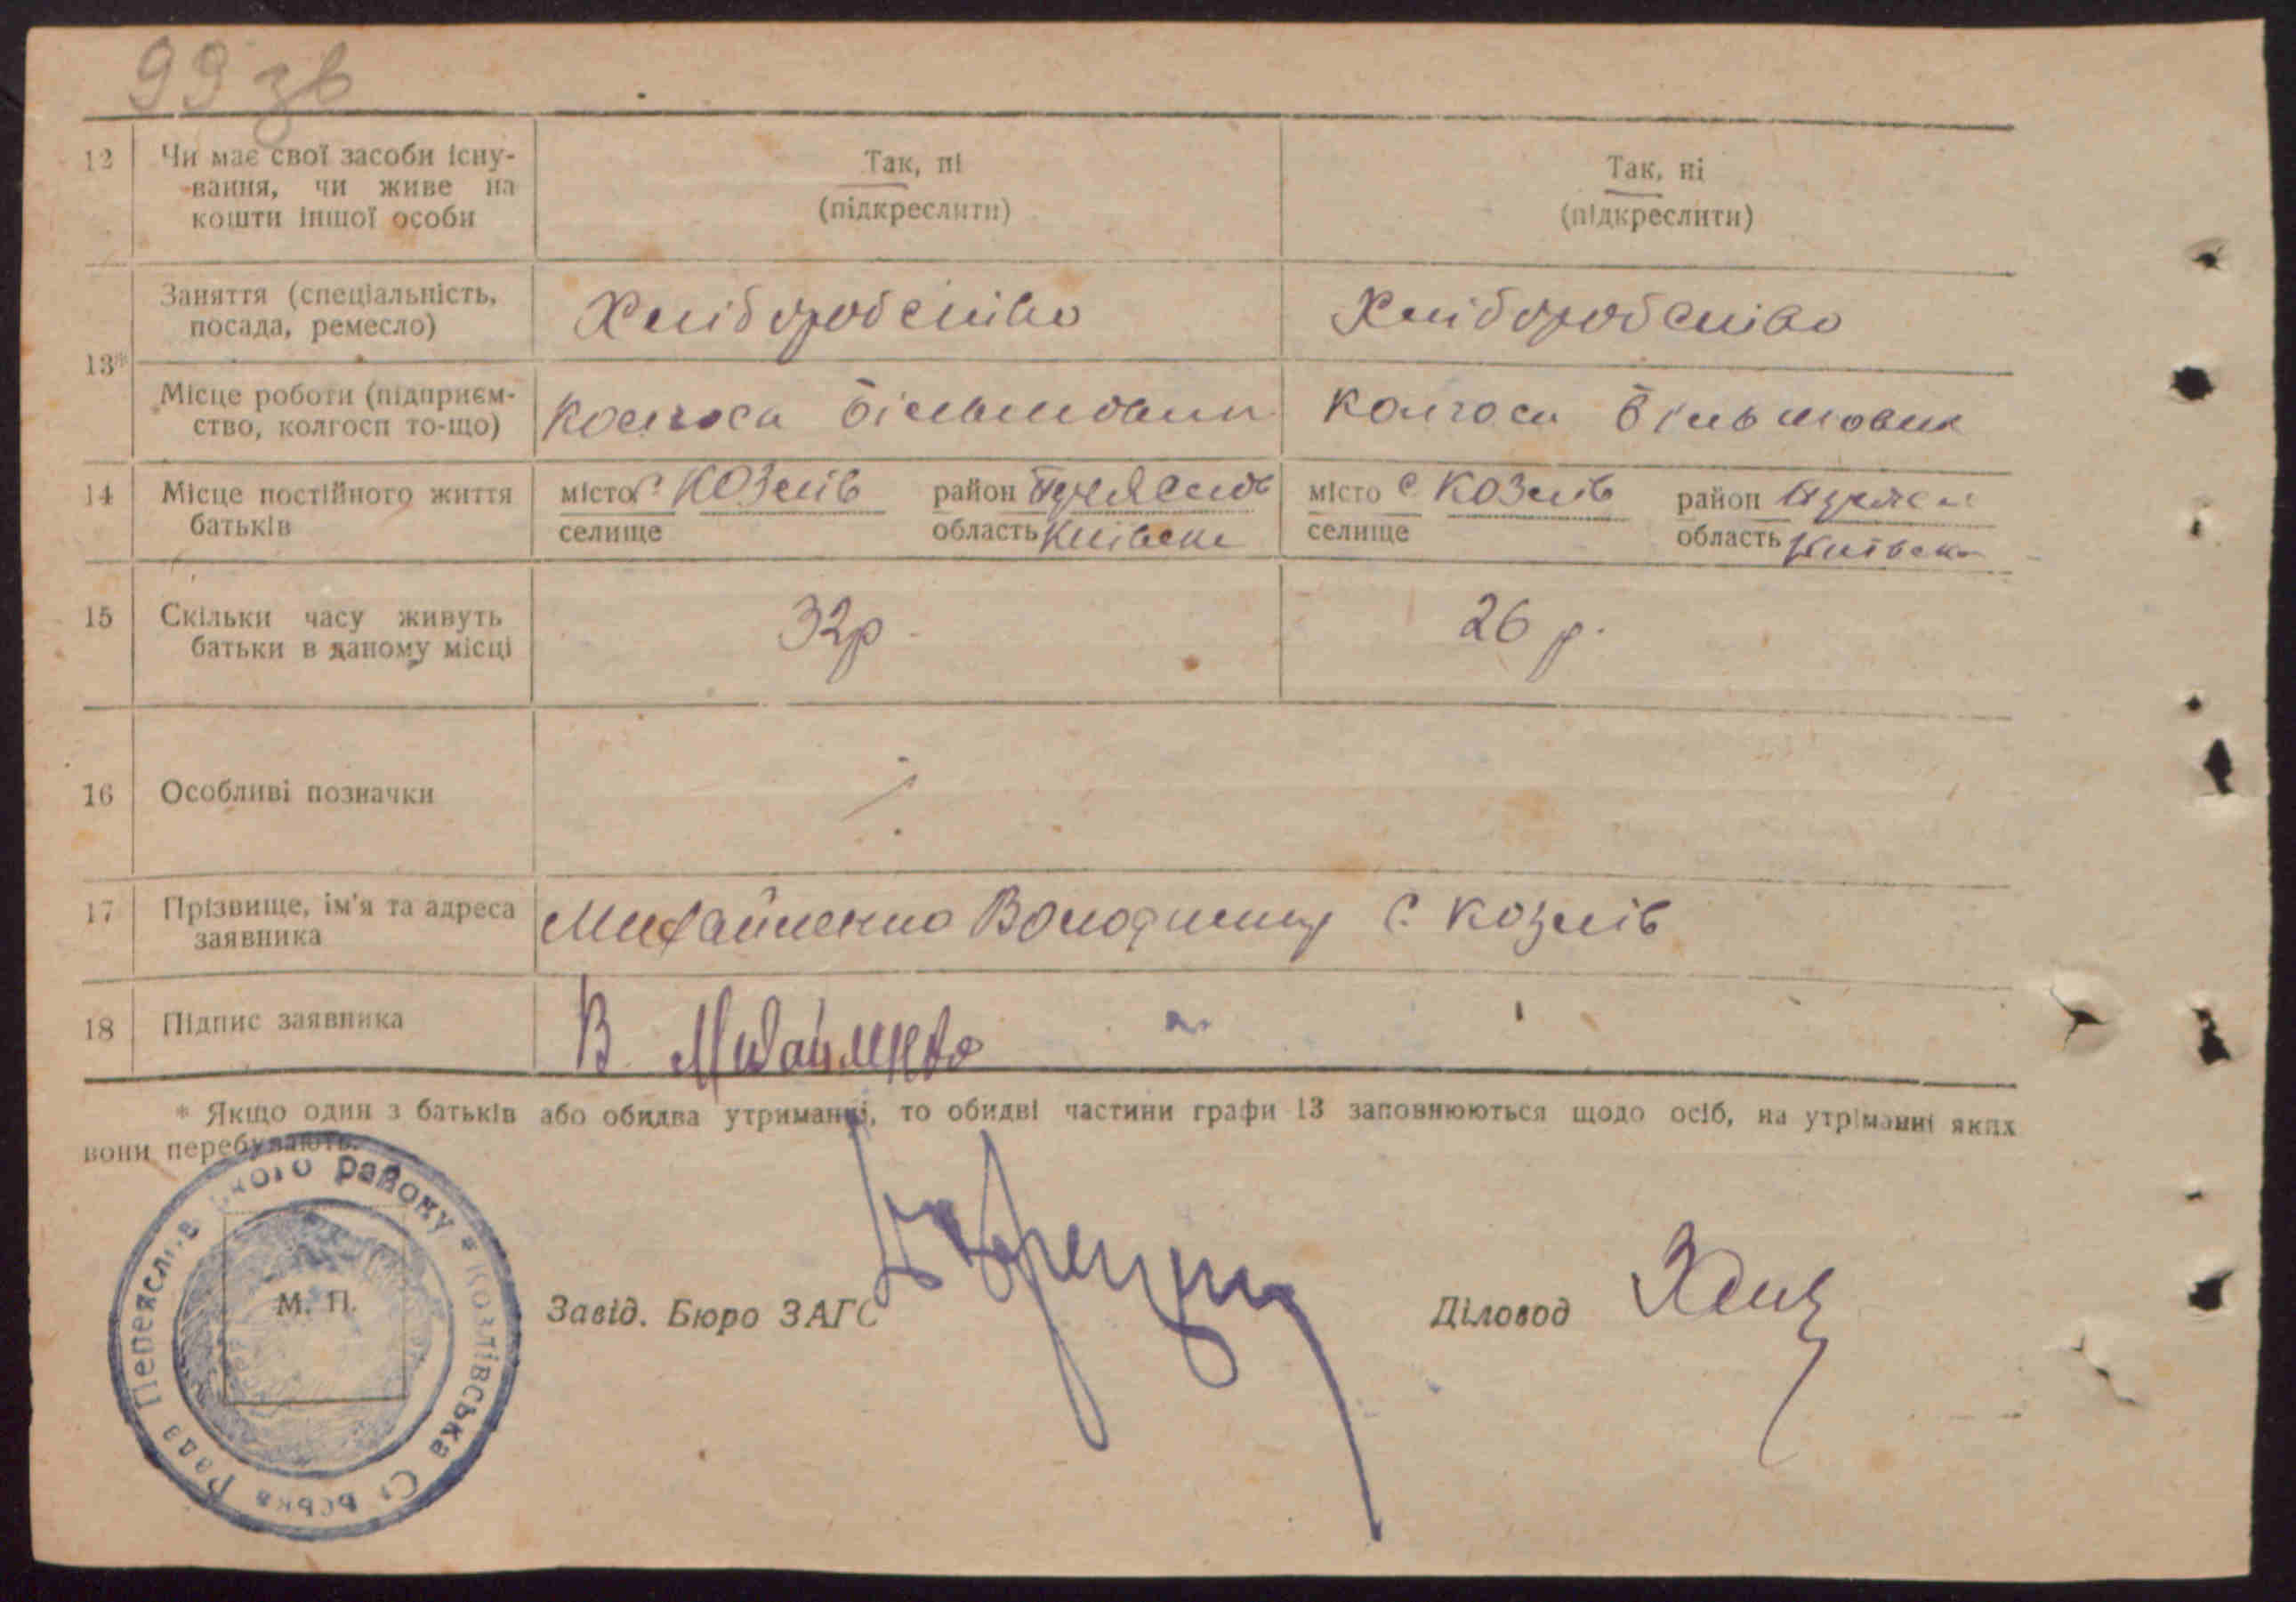 99 зв
12 Чи має свої засоби існу-
вання, чи живе на
кошти іншої особи
Так, ні
(підкреслити)
Так, ні
(підкреслити)
13*
Заняття (спеціальність,
посада, ремесло)
Хліборобство
Хліборобство
Місце роботи (підприєм-
ство, колгосп то-що)
Колгосп Більшовик
Колгосп Більшовик
14 Місце постійного життя
батьків
місто с. Козлів район Переяслав
селище область Київська
місто с Козлів район Переясл
селище область Київська
15 Скільки часу живуть
батьки в даному місці
32р.
26 р.
16 Особливі позначки
17 Прізвище, ім'я та адреса
заявника
Михайленко Володимир с. Козлів
18 Підпис заявника
В. Михайленко
* Якщо один з батьків або обидва утриманці, то обидві частини графи 13 заповнюються щодо осіб, на утріманні яких
вони перебувають.
Козлівська Сільська Рада Переяславського району
М. П.
Завід. Бюро ЗАГС
Діловод